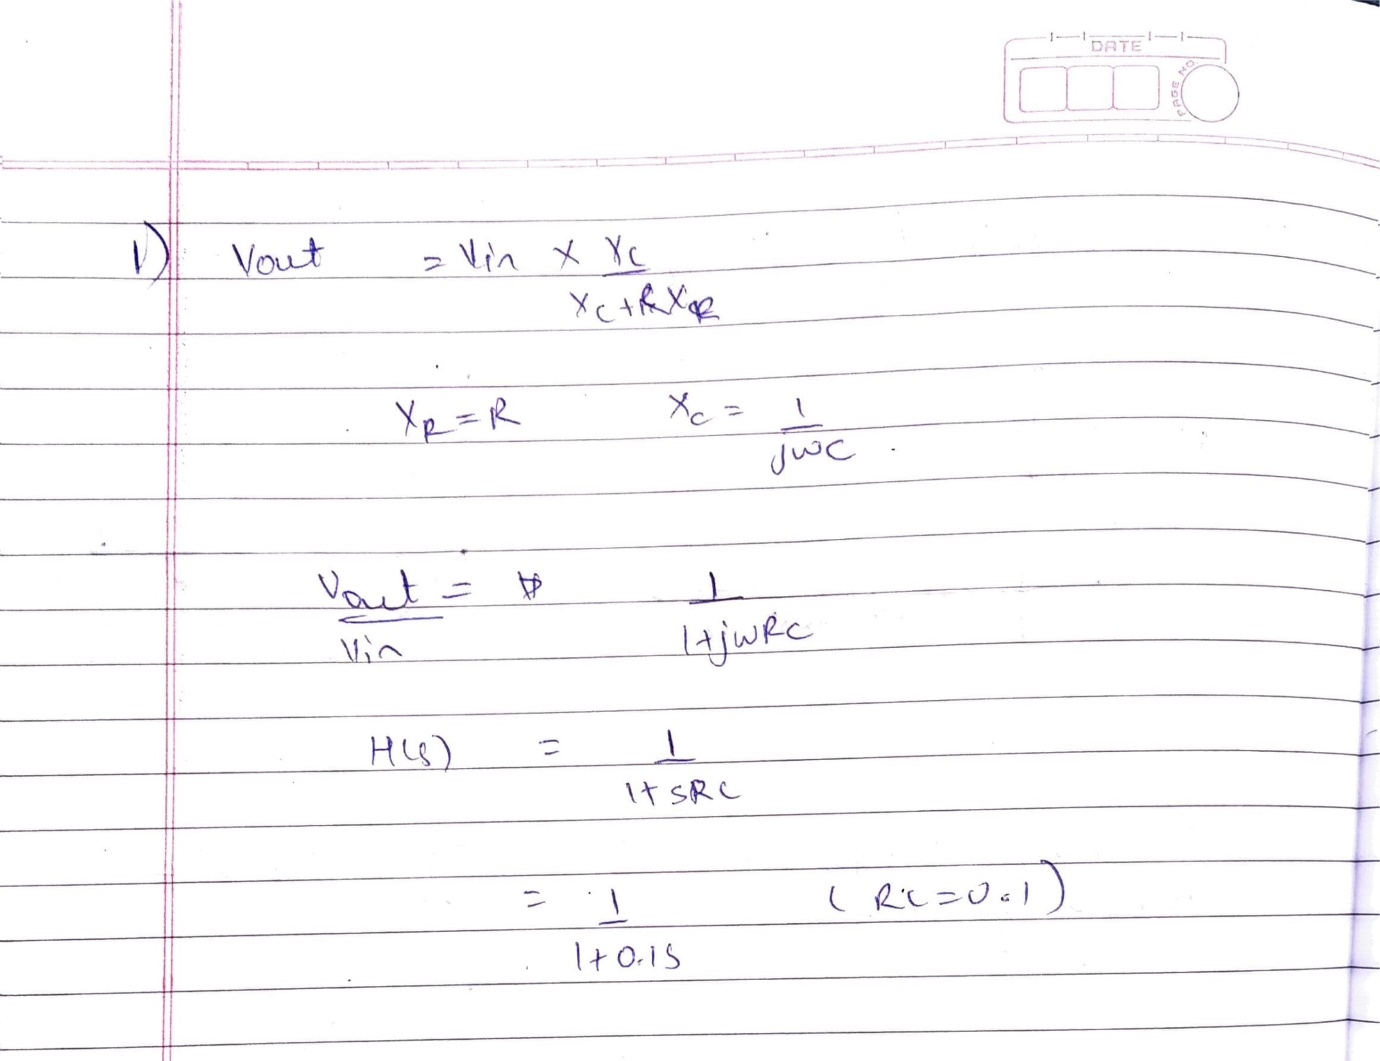 DATE
PAGE NO
1) Vout = Vin x Xc
Xc + XR
XR = R Xc = 1
jwc
Vout = 1
Vin 1+jwRC
H(s) = 1
1+ sRC
= 1 ( RC = 0.1 )
1+0.1s